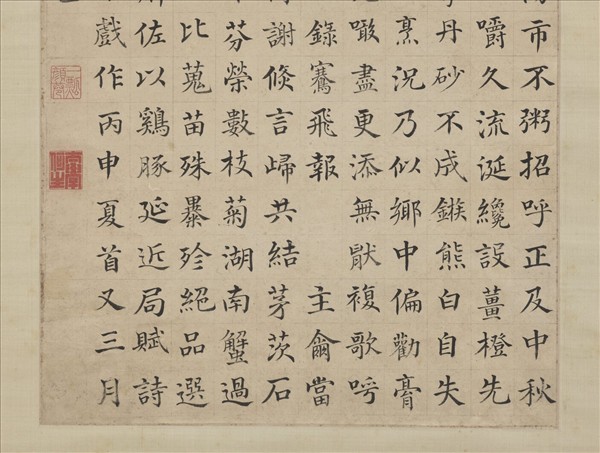 市不粥招呼正及中秋
嚼久流涎纔設薑橙先
丹砂不成鏃熊白自失
烹況乃似鄉中偏勸膏
噉盡更添無猒複歌呼
錄騫飛報 主龠當
謝倏言歸共結茅茨石
芬榮數枝菊湖南蟹過
比蒐苗殊暴殄絕品選
佐以鷄豚延近局賦詩
戲作丙申夏首又三月